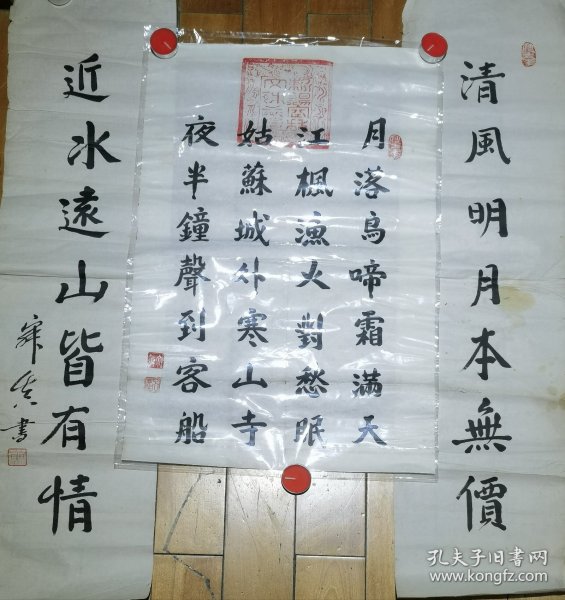 清風明月本無價
月落烏啼霜滿天
江楓漁火對愁眠
姑蘇城外寒山寺
夜半鐘聲到客船
近水遠山皆有情
書
孔夫子旧书网
www.kongfz.com